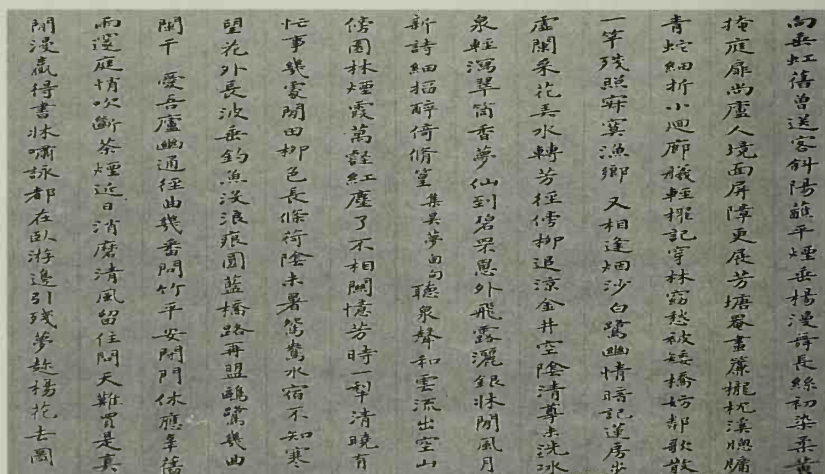 向垂虹舊曾送客斜陽蘸平煙垂楊漫舞長絲初染柔黃
掩庭扉尚廬人境面屏障更展芳塘罨畫簾櫳枕溪牕牖
青蛇細折小迴廊艤輕棹記穿林窈愁被矮橋妨鄰歌散
一竿殘照寂寞漁鄉 又相逢烟沙白鷺幽情暗記蓮房出
虛闌采花弄水轉芳徑傍柳追涼金井空陰清尊未洗冰
泉輕瀉翠筒香夢仙到碧罘罳外飛露灑銀牀閒風月
新詩細掐醉倚脩篁 集吳夢窗句 聽泉聲和雲流出空山
傍園林煙霞萬壑紅塵了不相關憶芳時一犁清曉有
忙事幾處閒田柳色長條荷陰未暑鴛鴦水宿不知寒
望花外長波垂釣魚沒浪痕圓藍橋路再盟鷗鷺幾曲
闌干 愛吾廬幽通徑曲幾番問竹平安閉門休應羊舊
雨邃庭悄吹斷茶煙近日消磨清風留住問天難買是真
閒漫贏得書牀嘯詠都在臥游邊引殘夢趁楊花去